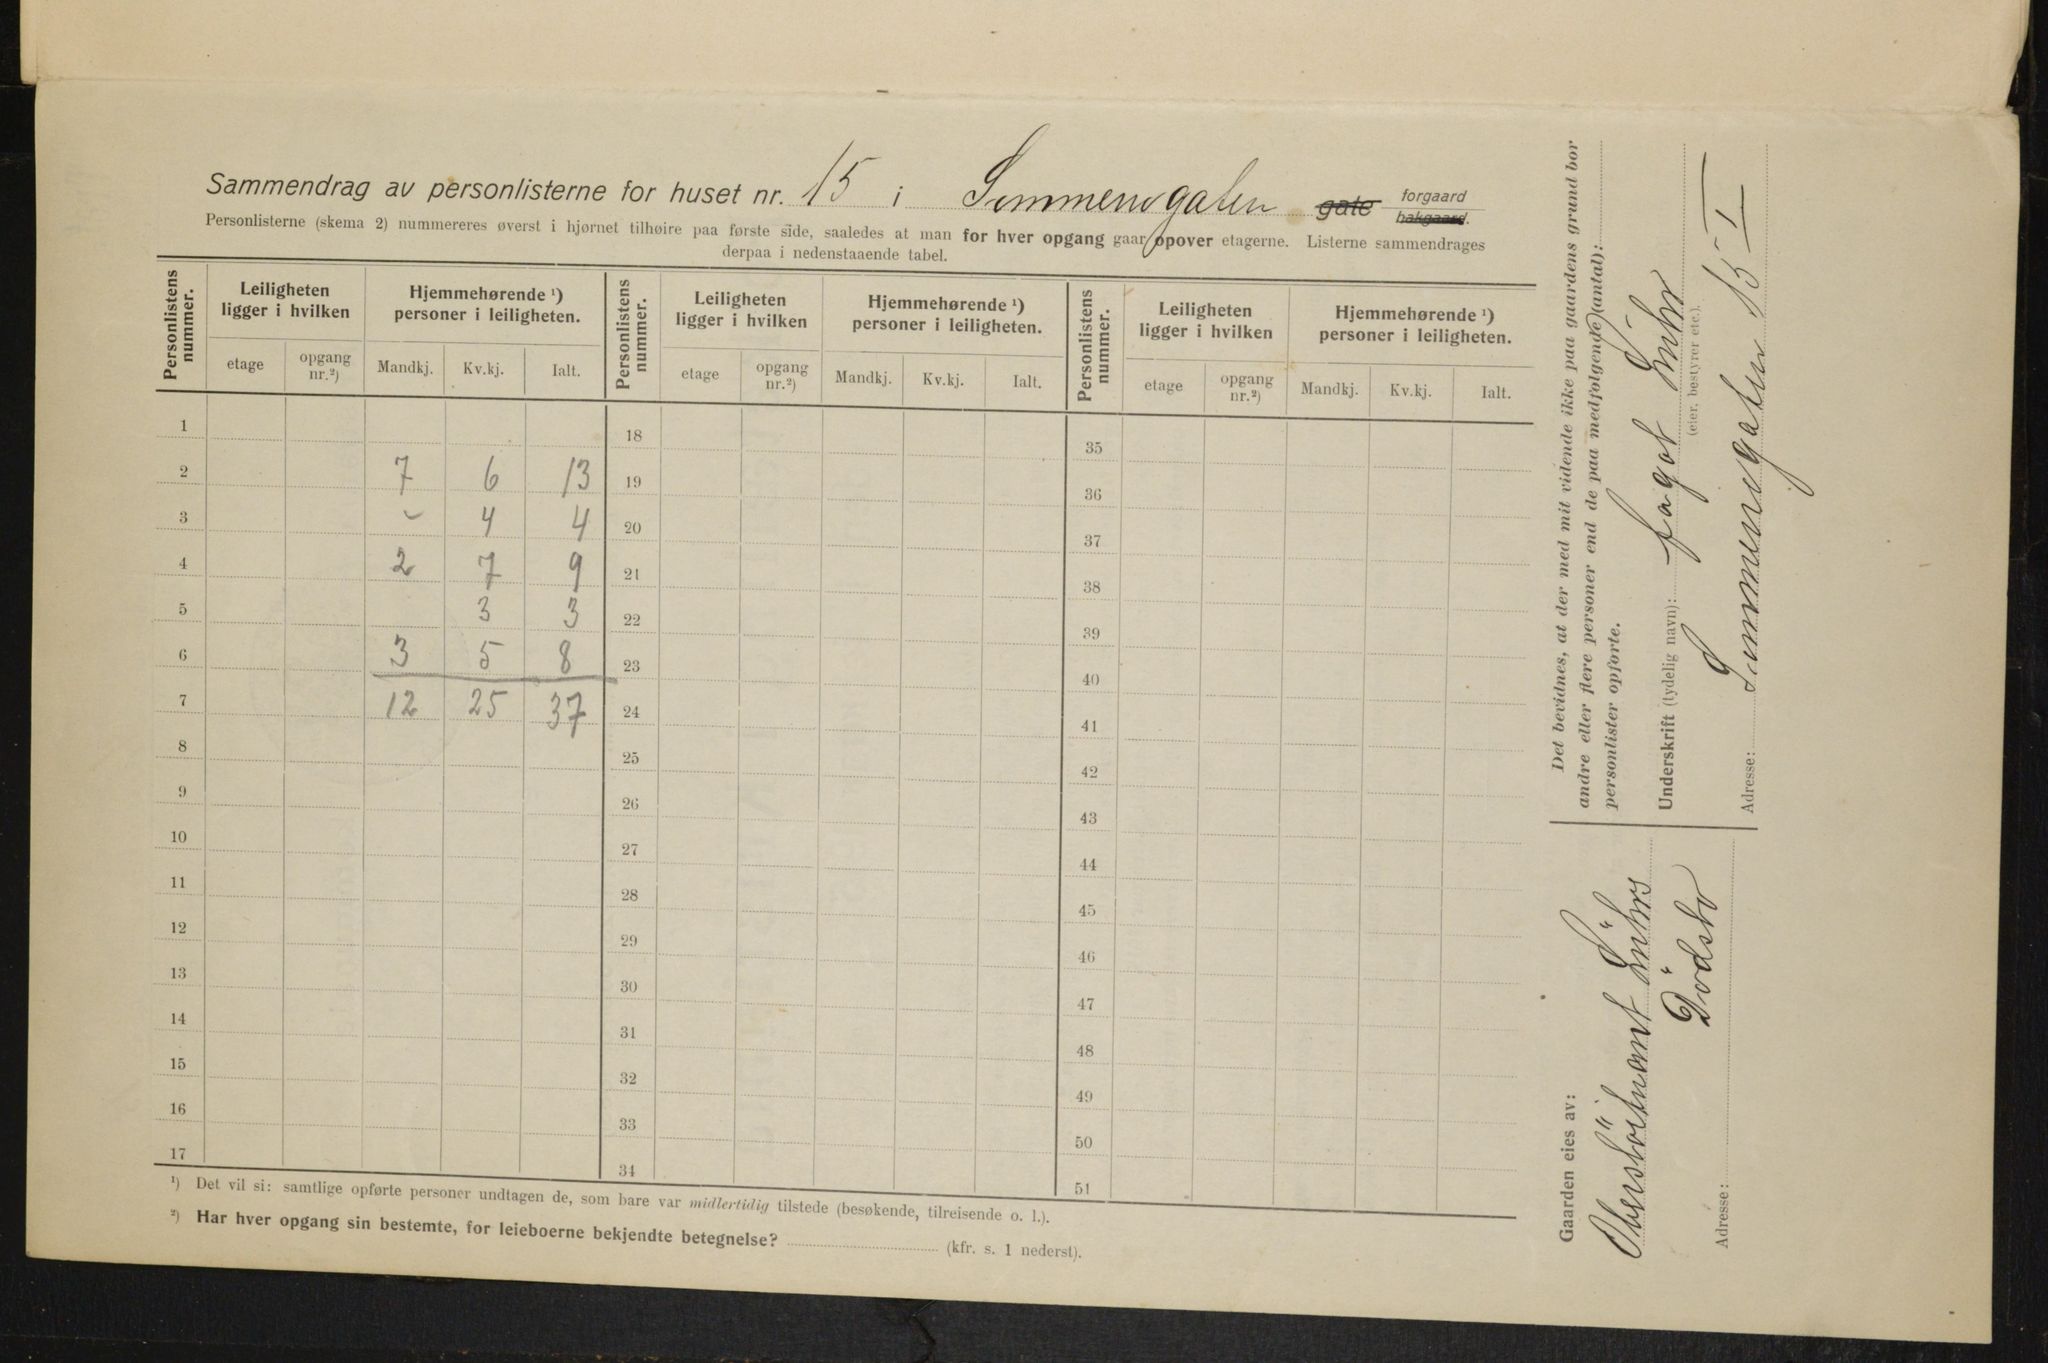 Sammendrag av personlisterne for huset nr. 15 i Sommerogaten gate forgaard
bakgaard.
Personlisterne (skema 2) nummereres øverst i hjørnet tilhøire paa første side, saaledes at man for hver opgang gaar opover etagerne. Listerne sammendrages
derpaa i nedenstaaende tabel.
Personlistens nummer. Leiligheten ligger i hvilken Hjemmehørende ¹) personer i leiligheten. Personlistens nummer. Leiligheten ligger i hvilken Hjemmehørende ¹) personer i leiligheten. Personlistens nummer. Leiligheten ligger i hvilken Hjemmehørende ¹) personer i leiligheten.
etage opgang nr.²) Mandkj. Kv.kj. Ialt. etage opgang nr.²) Mandkj. Kv.kj. Ialt. etage opgang nr.²) Mandkj. Kv.kj. Ialt.
1 18 35
2 7 6 13 19 36
3 - 4 4 20 37
4 2 7 9 21 38
5 3 3 22 39
6 3 5 8 23 40
7 12 25 37 24 41
8 25 42
9 26 43
10 27 44
11 28 45
12 29 46
13 30 47
14 31 48
15 32 49
16 33 50
17 34 51
¹) Det vil si: samtlige opførte personer undtagen de, som bare var midlertidig tilstede (besøkende, tilreisende o. l.).
²) Har hver opgang sin bestemte, for leieboerne bekjendte betegnelse? (kfr. s. 1 nederst).
Det bevidnes, at der med mit vidende ikke paa gaardens grund bor
andre eller flere personer end de paa medfølgende (antal):
personlister opførte.
Underskrift (tydelig navn): Lühr
(eier, bestyrer etc.).
Adresse: Sommerogaten 15 I
Gaarden eies av:
Oberstløitnant Lührs
Dödsbo
Adresse: